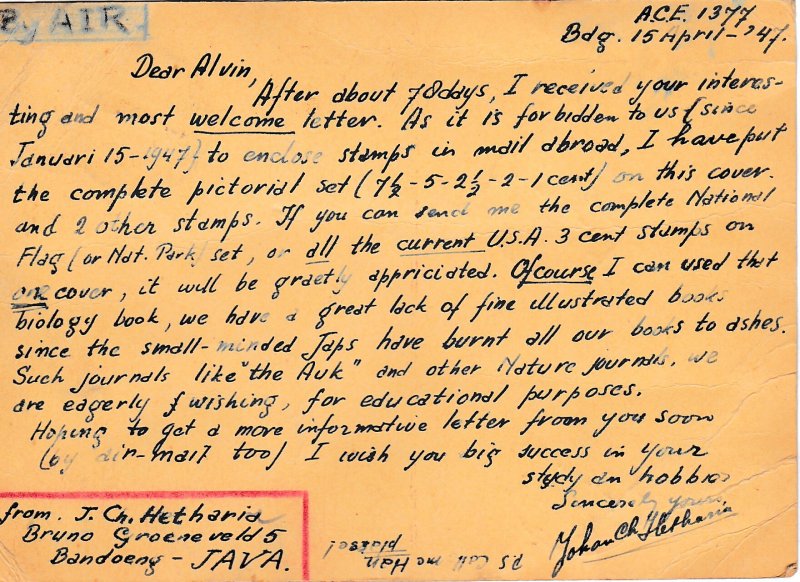 By AIR
A.C.E. 1377
Bdg. 15 April-'47.
Dear Alvin,
After about 78 days, I received your interes-
ting and most welcome letter. As it is forbidden to us (since
Januari 15-1947) to enclose stamps in mail abroad, I have put
the complete pictorial set (7½-5-2½-2-1 cent) on this cover.
and 2 other stamps. If you can send me the complete National
Flag (or Nat. Park) set, or all the current U.S.A. 3 cent stamps on
one cover, it will be graetly appriciated. Ofcourse I can used that
biology book, we have a great lack of fine illustrated books
since the small-minded Japs have burnt all our books to ashes.
Such journals like "the Auk" and other Nature journals, we
are eagerly wishing, for educational purposes.
Hoping to get a more informative letter from you soon
(by air-mail too) I wish you big success in your
study an hobbies
Sincerely yours,
Johan Ch Hetharia
from. J. Ch. Hetharia
Bruno Groeneveld 5
Bandoeng - JAVA.
PS Call me Han
please!